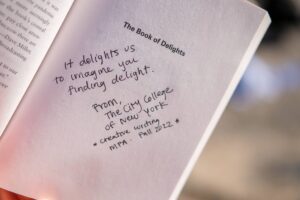 the pandemic
The Book of Delights
It delights us
to imagine you
finding delight.
From,
The City College
of New York
* creative writing
MFA. Fall 2022 *